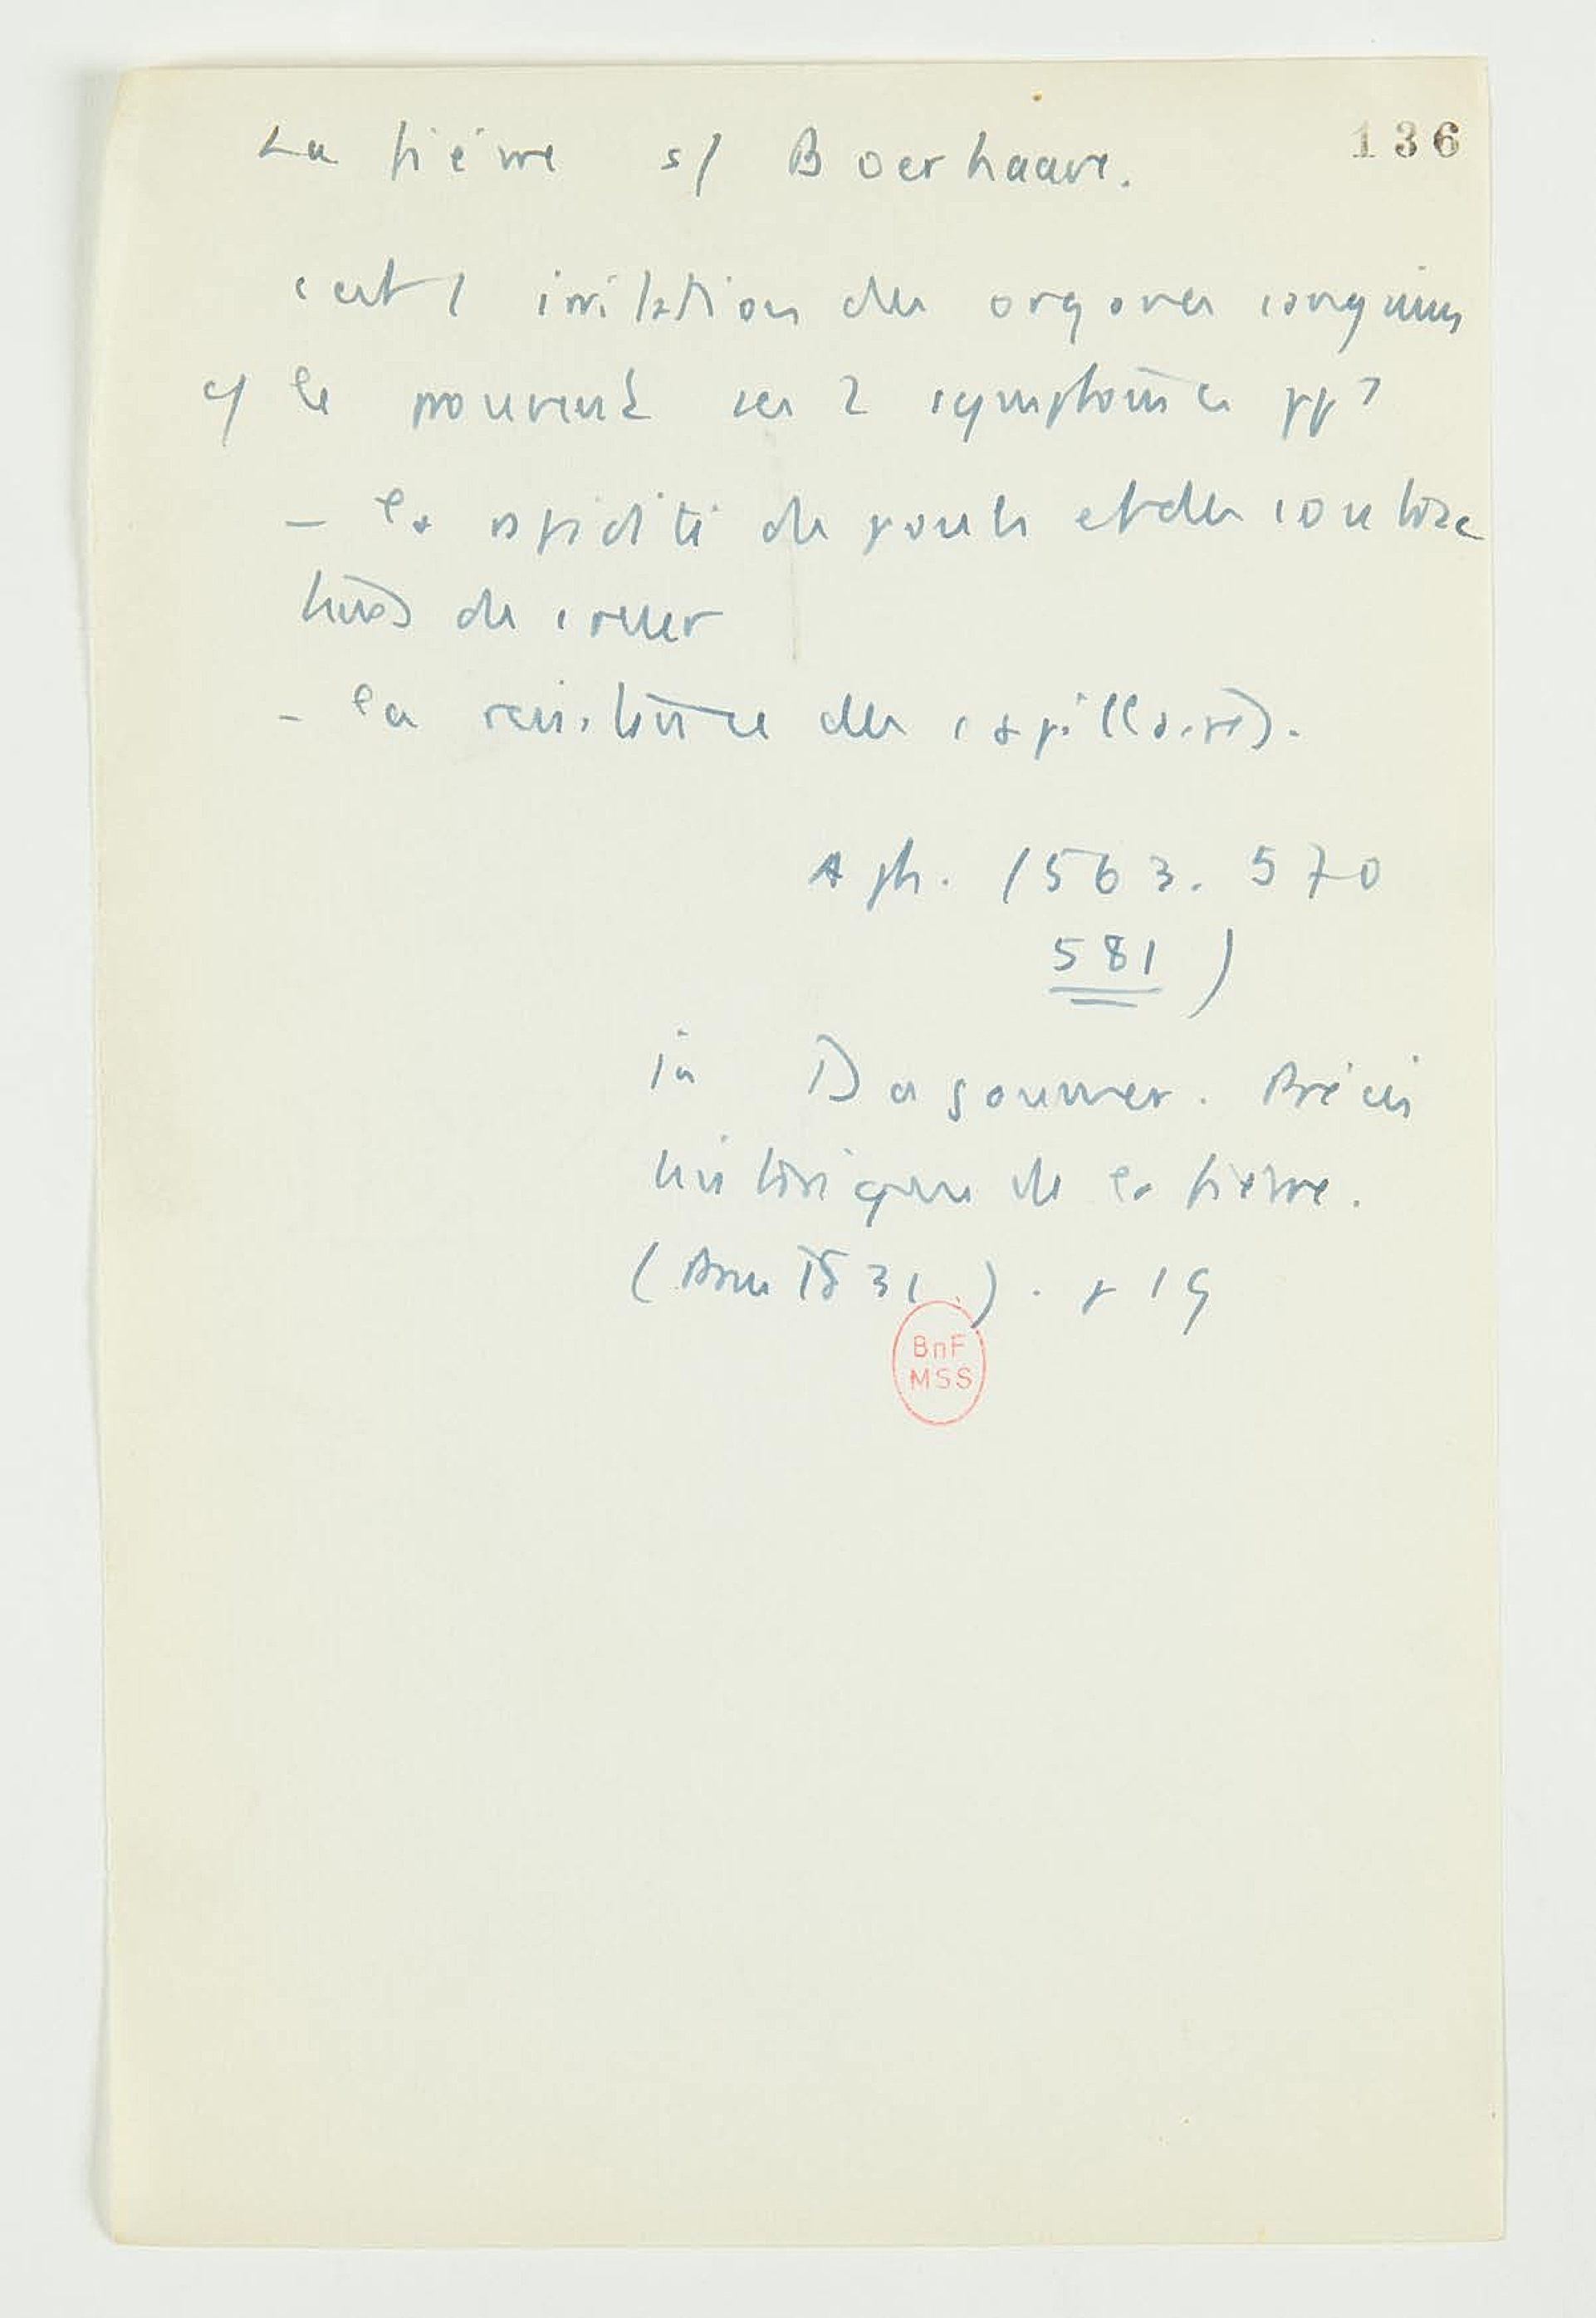 136
La fièvre s/ Boerhaave.
c'est l'irritation des organes sanguins
c/ le prouvent ses 2 symptômes ppx
– la rapidité du pouls et des contrac
tions du cœur
– la résistance des capillaires.
Aph. (563. 570
581)
in Dagoumer. Précis
historique de la fièvre.
(Paris 1831). p 19
BnF
MSS